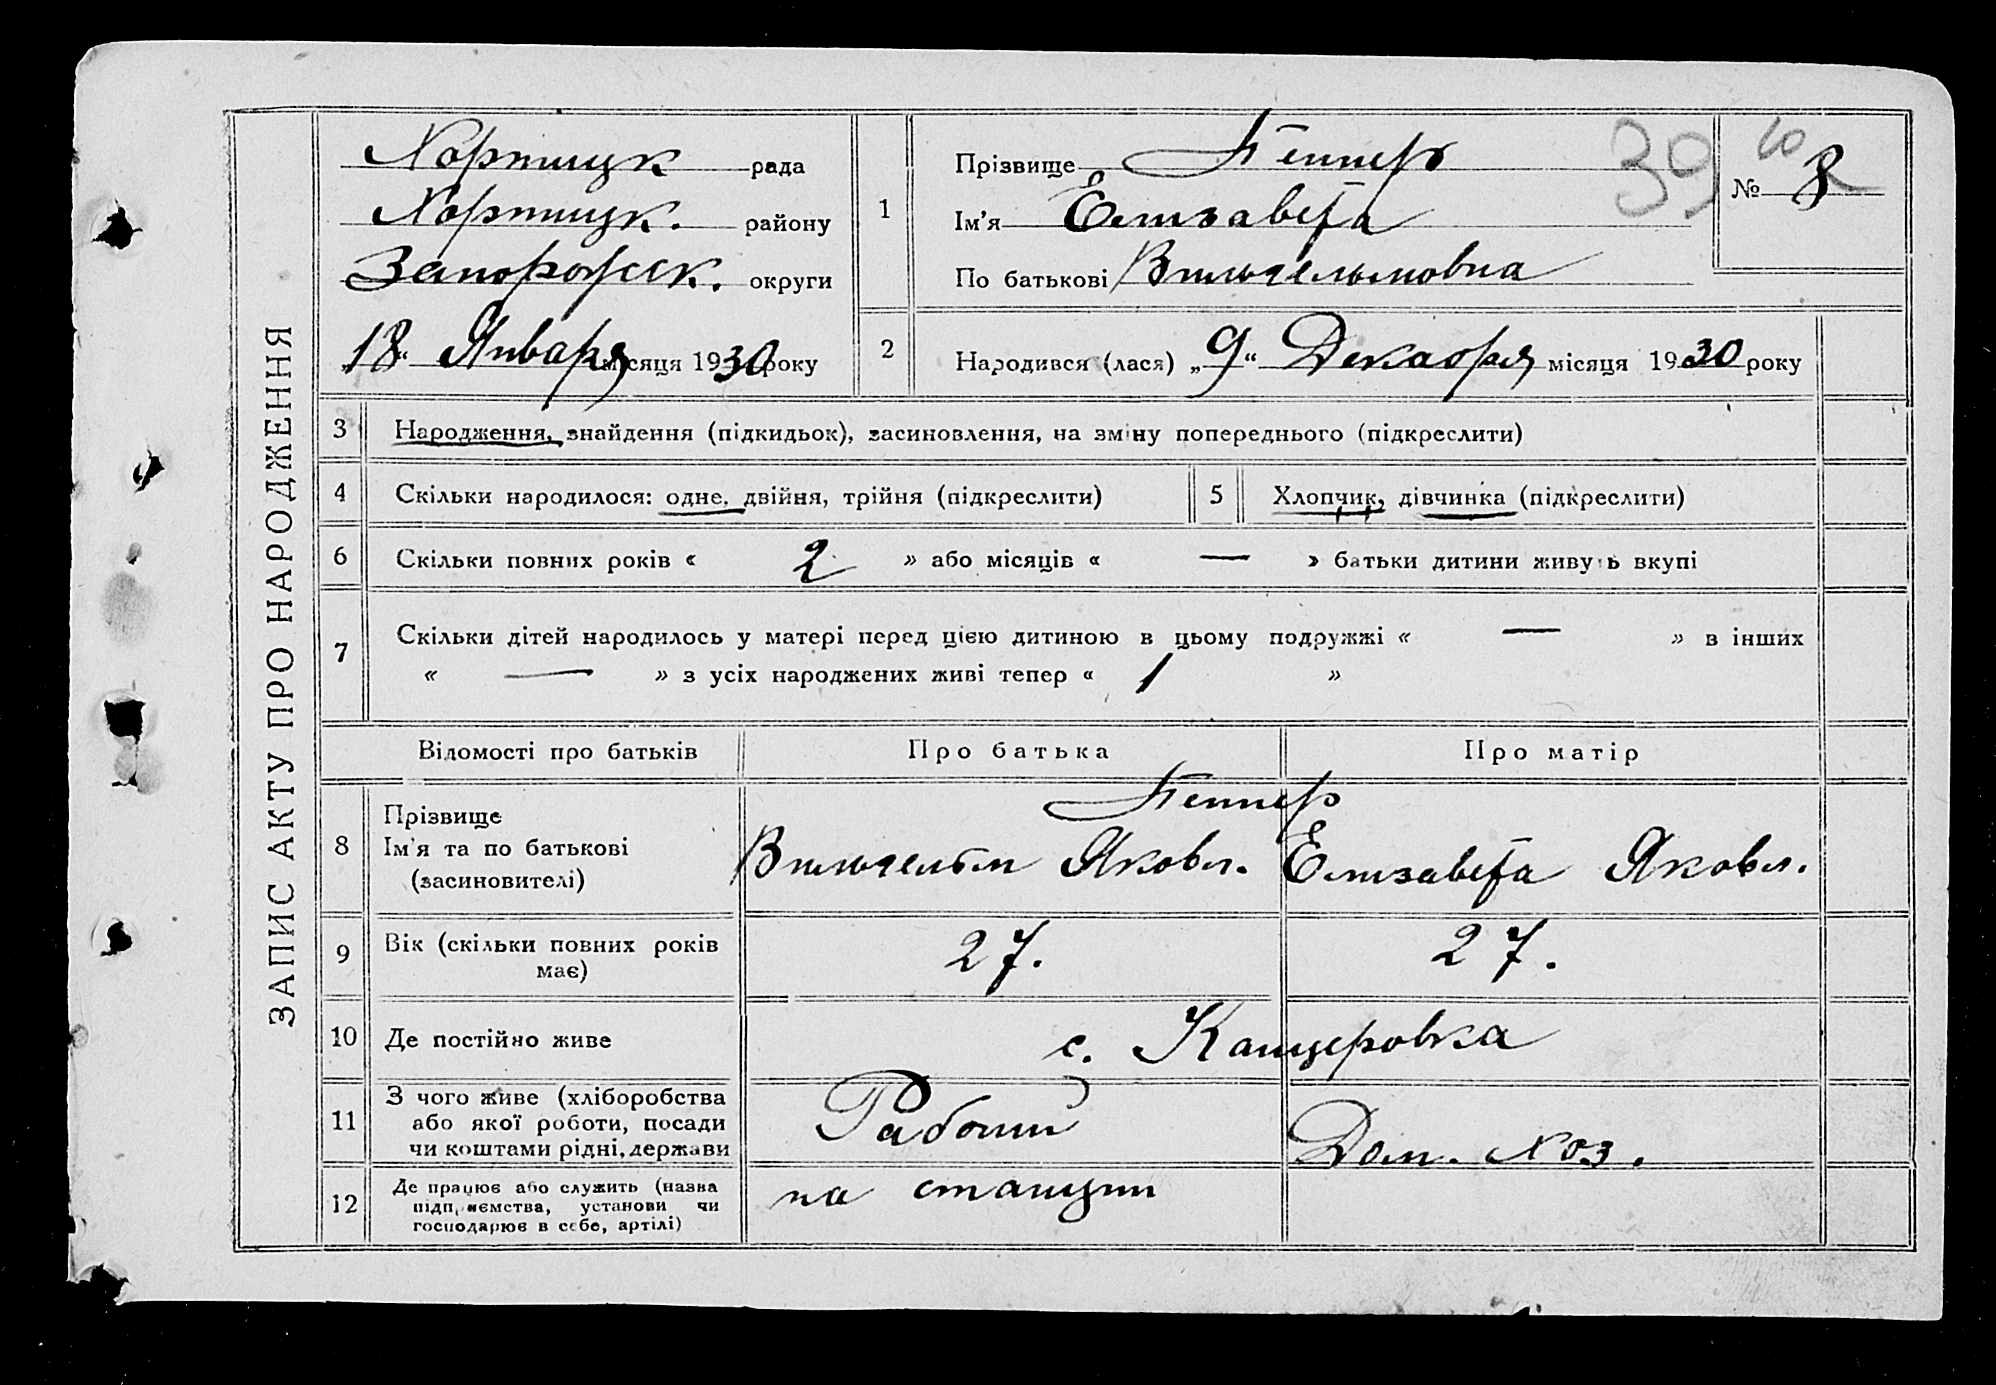 ЗАПИС АКТУ ПРО НАРОДЖЕННЯ
Хортицк рада
Хортицк. району
Запорожск. округи
„18“ Января місяця 1930 року
1
Прізвище Геппер
Ім'я Елизавета
По батькові Вильгельмовна
39
10
№ 8
2
Народився (лася) „9“ Декабря місяця 1930 року
3 Народження, знайдення (підкидьок), засиновлення, на зміну попереднього (підкреслити)
4 Скільки народилося: одне, двійня, трійня (підкреслити)
5 Хлопчик, дівчинка (підкреслити)
6 Скільки повних років « 2 » або місяців « — » батьки дитини живуть вкупі
7 Скільки дітей народилось у матері перед цією дитиною в цьому подружжі « — » в інших
« — » з усіх народжених живі тепер « 1 »
Відомості про батьків Про батька Про матір
8 Прізвище
Ім'я та по батькові
(засиновителі)
Геппер
Вильгельм Яковл. Елизавета Яковл.
9 Вік (скільки повних років
має)
27. 27.
10 Де постійно живе с. Канцеровка
11 З чого живе (хліборобства
або якої роботи, посади
чи коштами рідні, держави
Рабочий Дом. Хоз.
12 Де працює або служить (назва
підприємства, установи чи
господарює в себе, артілі)
на станции